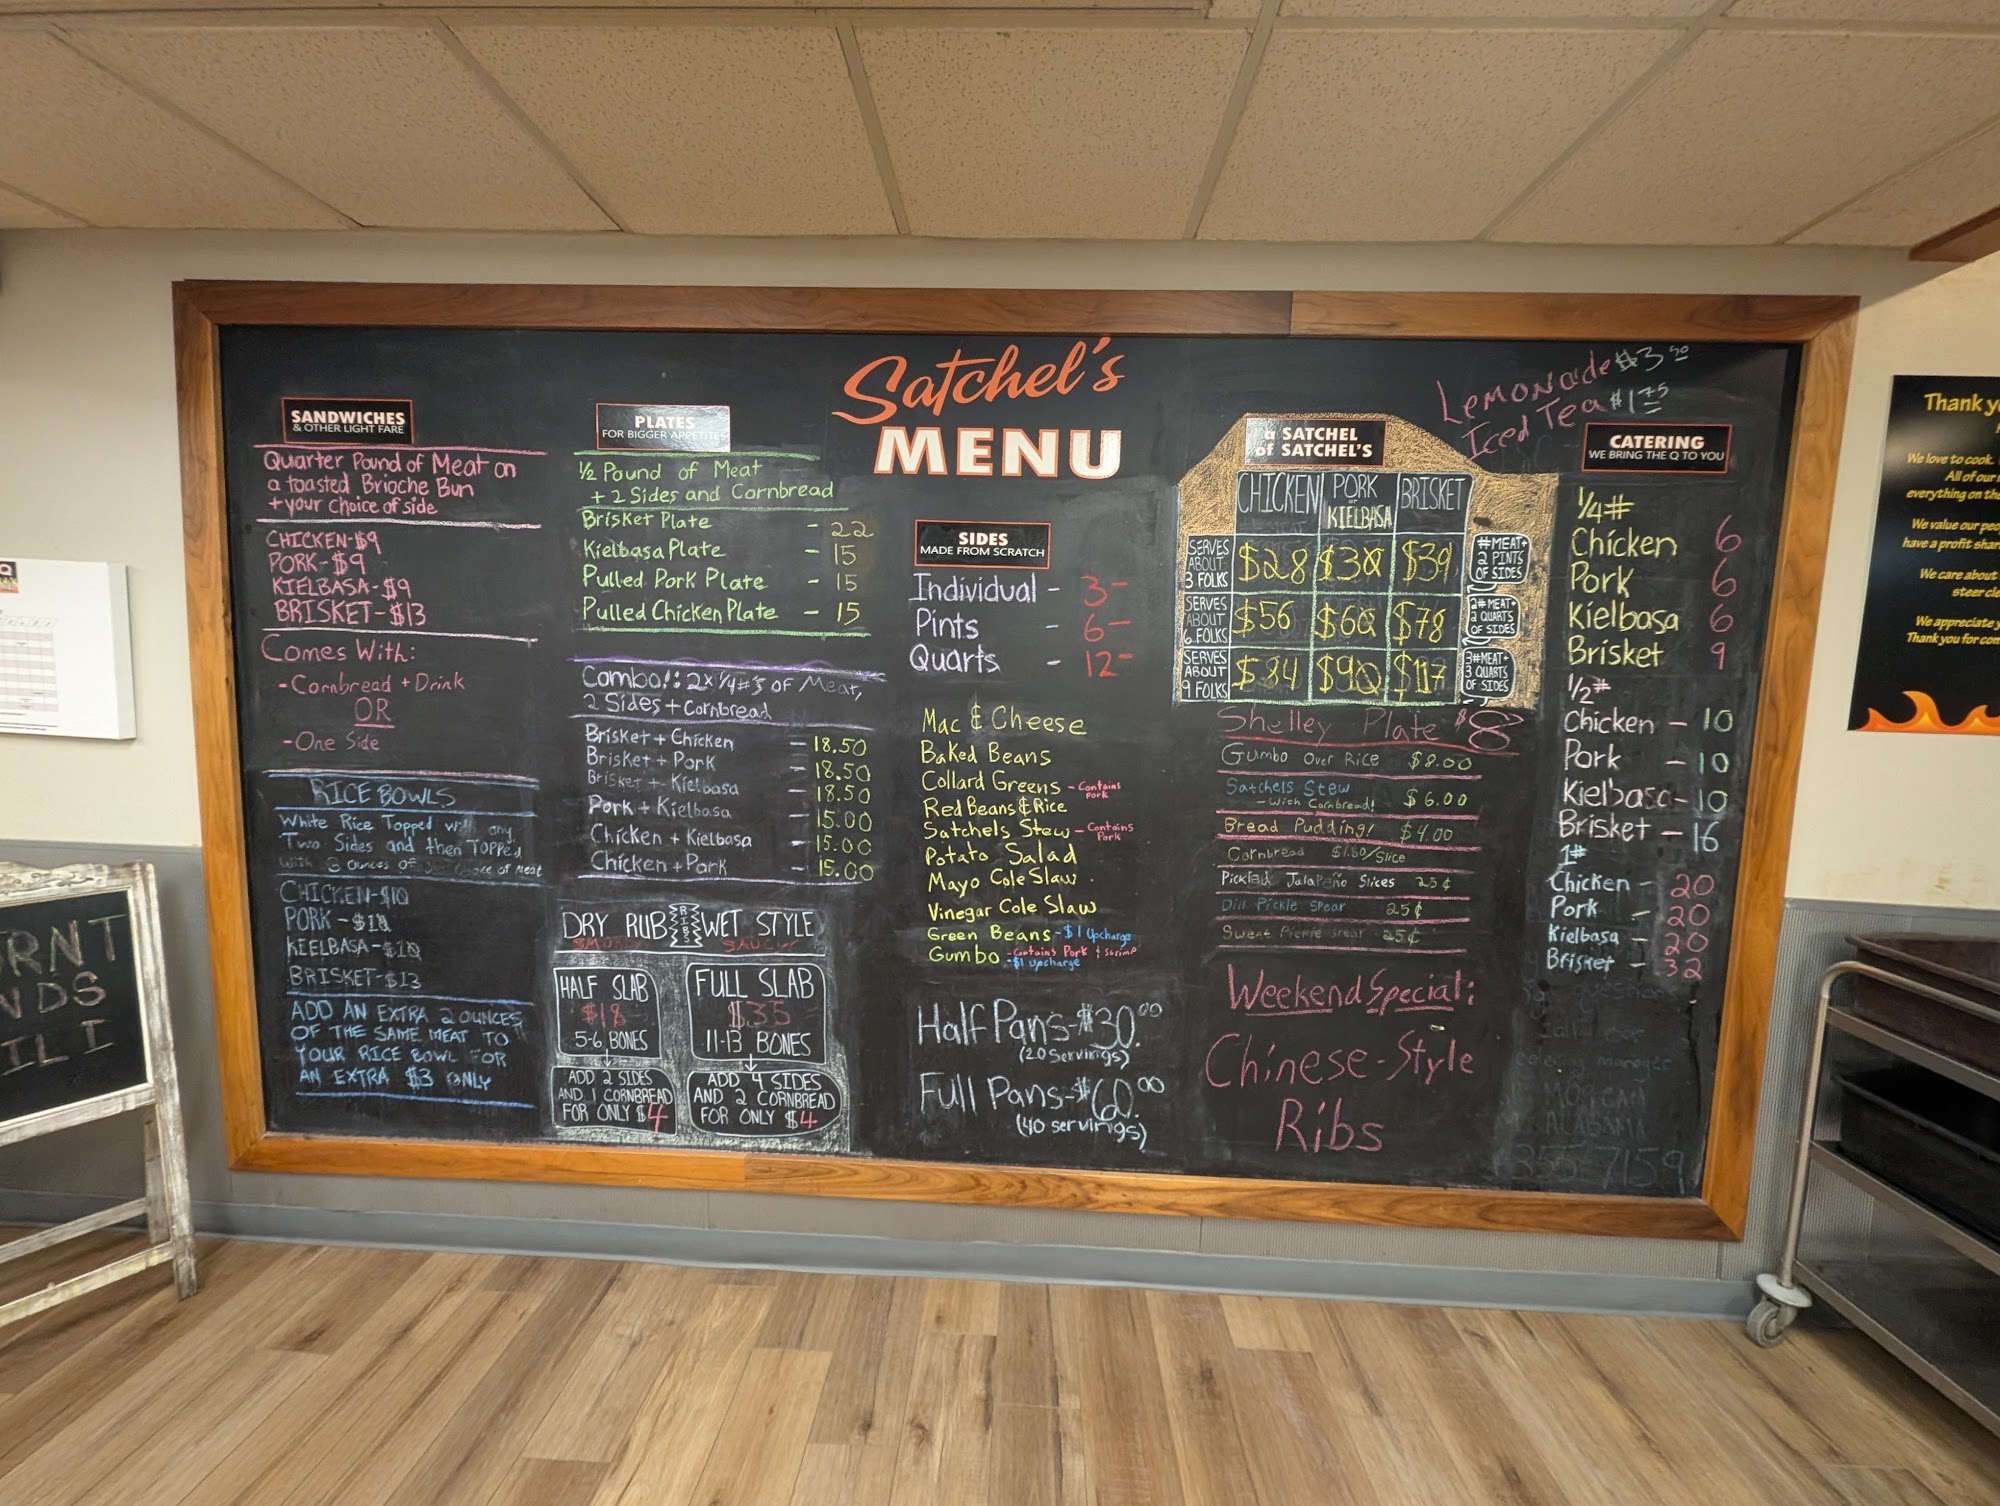 Satchel's
MENU
SANDWICHES
& OTHER LIGHT FARE
Quarter Pound of Meat on
a toasted Brioche Bun
+ your choice of side
CHICKEN-$9
PORK-$9
KIELBASA-$9
BRISKET-$13
Comes With:
-Cornbread + Drink
OR
-One Side
RICE BOWLS
White Rice Topped with any
Two Sides and then Topped
with 3 ounces of choice of Meat
CHICKEN-$10
PORK-$10
KIELBASA-$10
BRISKET-$13
ADD AN EXTRA 2 OUNCES
OF THE SAME MEAT TO
YOUR RICE BOWL FOR
AN EXTRA $3 ONLY
PLATES
FOR BIGGER APPETITES
1/2 Pound of Meat
+ 2 Sides and Cornbread
Brisket Plate - 22
Kielbasa Plate - 15
Pulled Pork Plate - 15
Pulled Chicken Plate - 15
Combo!: 2x 1/4#'s OF Meat,
2 Sides + Cornbread
Brisket + Chicken - 18.50
Brisket + Pork - 18.50
Brisket + Kielbasa - 18.50
Pork + Kielbasa - 15.00
Chicken + Kielbasa - 15.00
Chicken + Pork - 15.00
DRY RUB RIBS WET STYLE
SMOKEY SAUCY
HALF SLAB
$18
5-6 BONES
ADD 2 SIDES
AND 1 CORNBREAD
FOR ONLY $4
FULL SLAB
$35
11-13 BONES
ADD 4 SIDES
AND 2 CORNBREAD
FOR ONLY $4
SIDES
MADE FROM SCRATCH
Individual - 3-
Pints - 6-
Quarts - 12-
Mac & Cheese
Baked Beans
Collard Greens - Contains Pork
Red Beans & Rice
Satchels Stew - Contains Pork
Potato Salad
Mayo Cole Slaw
Vinegar Cole Slaw
Green Beans - $1 Upcharge
Gumbo - Contains Pork & Shrimp
- $1 Upcharge
Half Pans-$30.00
(20 Servings)
Full Pans-$60.00
(40 servings)
Lemonade $3.50
Iced Tea $1.75
a SATCHEL
of SATCHEL'S
CHICKEN PORK or KIELBASA BRISKET
SERVES ABOUT 3 FOLKS $28 $30 $39 #MEAT+ 2 PINTS OF SIDES
SERVES ABOUT 6 FOLKS $56 $60 $78 2#MEAT+ 2 QUARTS OF SIDES
SERVES ABOUT 9 FOLKS $84 $90 $117 3#MEAT+ 3 QUARTS OF SIDES
Shelley Plate $8
Gumbo Over Rice $8.00
Satchels Stew
-With Cornbread! $6.00
Bread Pudding! $4.00
Cornbread $1.50/Slice
Pickled Jalapeño Slices 25¢
Dill Pickle Spear 25¢
Sweet Pickle Spear 25¢
Weekend Special:
Chinese-Style
Ribs
CATERING
WE BRING THE Q TO YOU
1/4#
Chicken 6
Pork 6
Kielbasa 6
Brisket 9
1/2#
Chicken - 10
Pork - 10
Kielbasa - 10
Brisket - 16
1#
Chicken - 20
Pork - 20
Kielbasa - 20
Brisket - 32
catering manager
MORGAN
ALABAMA
355-7159
RNT
NDS
ILI
Thank y
We love to cook.
All of our
everything on the
We value our peo
have a profit shar
We care about
steer cle
We appreciate y
Thank you for com